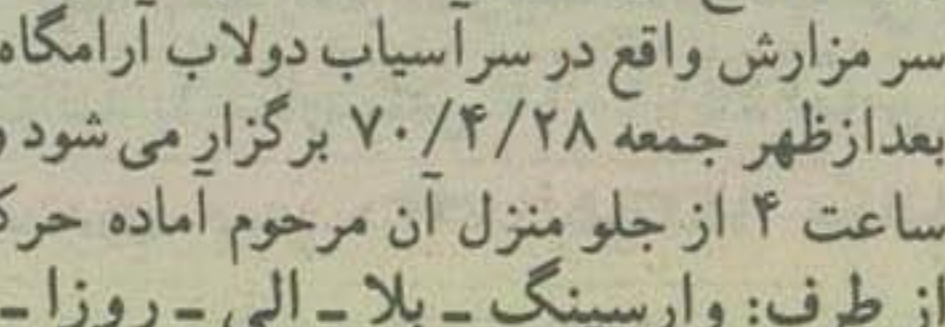 سر مزارش واقع در سرآسیاب دولاب آرامگاه
بعدازظهر جمعه ۷۰/۴/۲۸ برگزار می شود و
ساعت ۴ از جلو منزل آن مرحوم آماده حرک
از طرف: وارسینگ ـ بلا ـ الی ـ روزا ـ